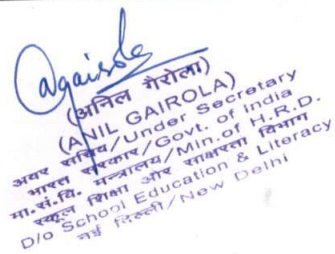 Agairola
(अनिल गैरोला)
(ANIL GAIROLA)
अवर सचिव/Under Secretary
भारत सरकार/Govt. of India
मा.सं.वि. मन्त्रालय/Min.of H.R.D.
स्कूल शिक्षा और साक्षरता विभाग
D/o School Education & Literacy
नई दिल्ली/New Delhi